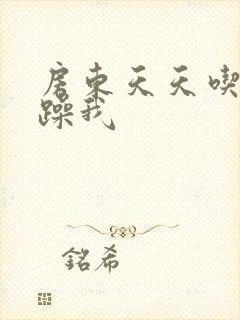 房東天天喫
躁我
銘希